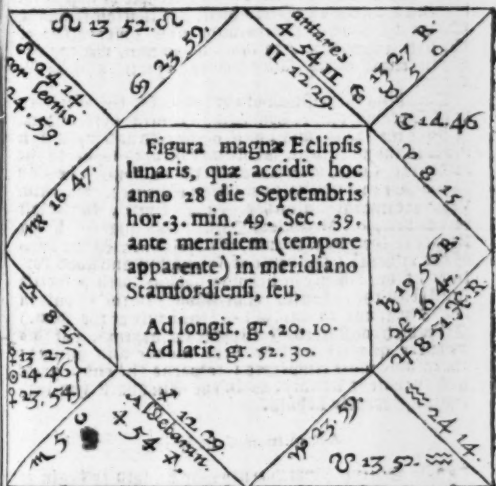 ♌ 13 52. ♌
♋ 23. 59.
antares
4 54 ♊
♊ 12.29.
13 27 R.
♉ 5 0
♌ 24 14
cor leonis
24. 59.
☾ 14.46
♈ 8 15
♍ 16 47.
Figura magnæ Eclipſis
lunaris, quæ accidit hoc
anno 28 die Septembris
hor. 3. min. 49. Sec. 39.
ante meridiem (tempore
apparente) in meridiano
Stamfordienſi, ſeu,
Ad longit. gr. 20. 10.
Ad latit. gr. 52. 30.
♄ 19 56. R.
♓ 16 47
♃ 8. 51 ♓. R.
♎ 8 15.
☿ 13 27
☉ 14 46
♀ 23, 54
♏ 5 0
♐ 12.29.
Aldebaran.
4 54 ♐.
♑ 23. 59.
♒ 24 14.
☋ 13. 52. ♒